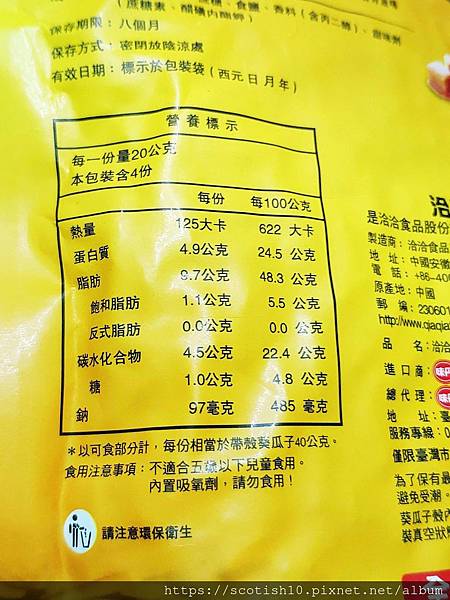 (蔗糖素、醋磺內酯鉀)
糖、食鹽、香料(含丙二醇)、甜味劑
保存期限：八個月
保存方式：密閉放陰涼處
有效日期：標示於包裝袋(西元日月年)
營養標示
每一份量20公克
本包裝含4份
每份 每100公克
熱量 125大卡 622 大卡
蛋白質 4.9公克 24.5 公克
脂肪 9.7公克 48.3 公克
飽和脂肪 1.1公克 5.5 公克
反式脂肪 0.0公克 0.0 公克
碳水化合物 4.5公克 22.4 公克
糖 1.0公克 4.8 公克
鈉 97毫克 485 毫克
＊以可食部分計，每份相當於帶殼葵瓜子40公克。
食用注意事項：不適合五歲以下兒童食用。
內置吸氧劑，請勿食用！
請注意環保衛生
洽
是洽洽食品股份
製造商：洽洽食品
地 址：中國安徽
電 話：+86-40
原產地：中國
郵 編：23060
http://www.qiaqia
品 名：洽洽
進口商：味丹
總代理：味丹
地 址：臺
服務專線：0
僅限臺灣市
為了保有最
避免受潮。
葵瓜子殼內
裝真空狀態
https://scotish10.pixnet.net/album